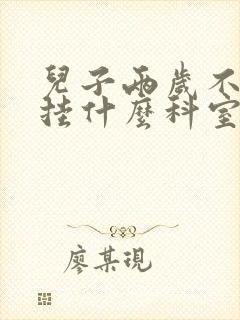 兒子兩歲不
挂什麼科室
廖某現